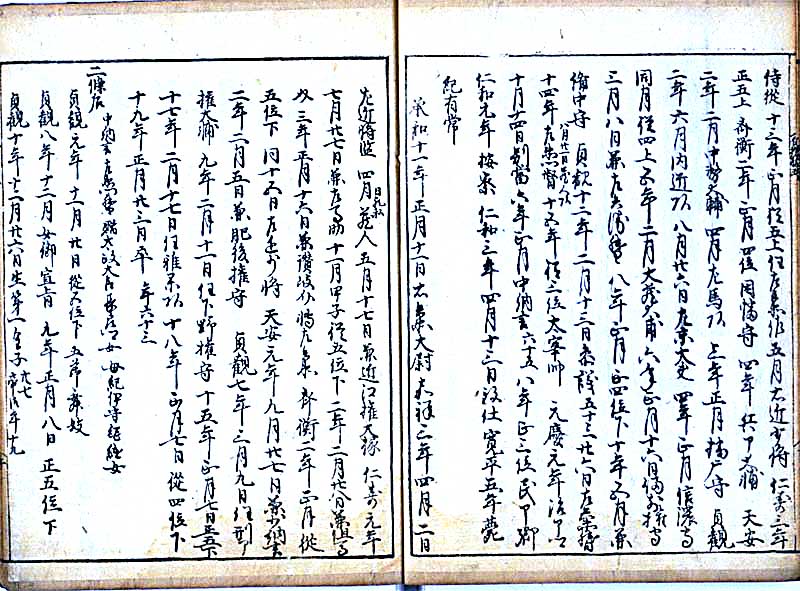 侍従 十三年正月従五上任左兵佐 五月右近少将 仁寿三年
正五上 斉衡二年正月四位 因幡守 四年兵部大輔 天安
二年二月中務大輔 四月左馬頭 三年正月播磨守 貞観
二年六月内匠頭 八月廿六日左京大夫 四年正月信濃守
同月従四上 五年二月大蔵大輔 六年正月十六日備前権守
三月八日兼左兵衛督 八年正月正四位下 十年五月兼
備中守 貞観十二年二月十三日参議五十三 廿六日左兵衛督
十四年 八月廿五日 左衛門督 十五年従三位太宰帥 元慶元年治部卿
十月十四日別当 六年正月中納言六十五 八年正三位民部卿
仁和元年按察 仁和三年四月十三日致仕 寛平五年薨
紀有常
承和十一年正月十一日右兵衛大尉 嘉祥三年四月二日
左近将監 四月蔵人 五月十七日兼近江権大掾 仁寿元年
七月廿七日兼左馬助 十一月甲子従五位下 二年二月廿八日兼但馬
介 三年正月十六日兼讃岐介 左兵 斉衡二年正月従
五位下 同十五日左近少将 天安元年九月廿七日兼少納言
二年二月五日兼肥後権守 貞観七年三月九日任刑部
権大輔 九年二月十一日任下野権守 十五年正月七日正五下
十七年二月十七日任雅楽頭 十八年正月七日従四位下
十九年正月廿三日卒 年六十三
二条后
中納言左衛門督贈太政大臣長良女 母紀伊守総継女
貞観元年十一月廿日従五位下 五節舞妓
貞観八年十二月女御宣旨 九年正月八日正五位下
貞観十年十二月廿六日生第一皇子 廿七 帝御年十九